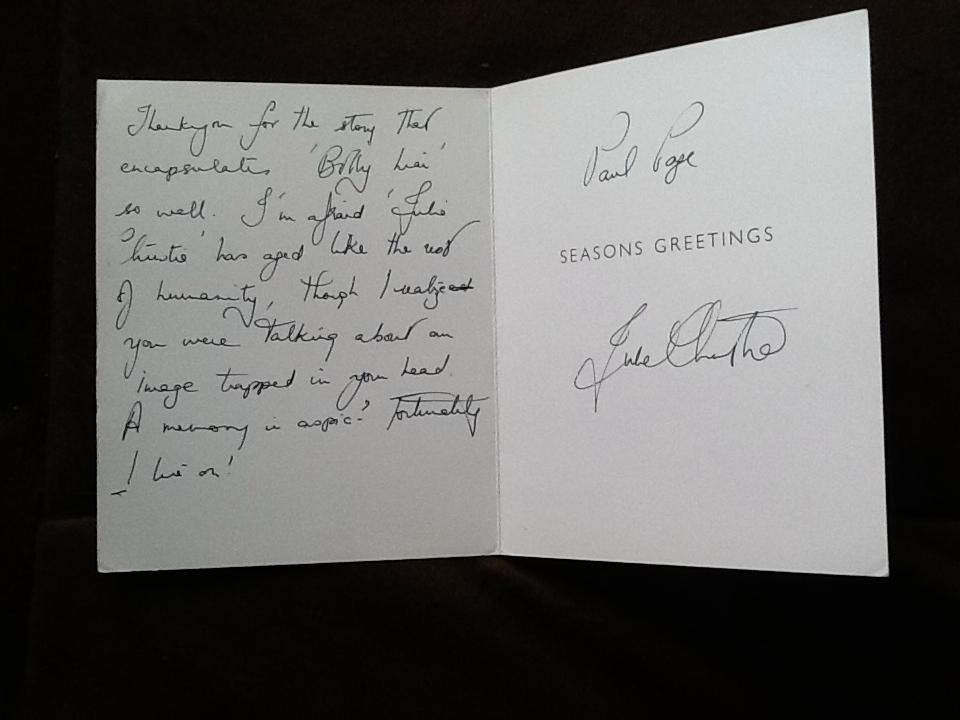 Thankyou for the story that
encapsulates 'Billy Liar'
so well. I'm afraid 'Julie
Christie' has aged like the rest
of humanity, though I realize
you were talking about an
image trapped in your head.
A memory in aspic? Fortunately
I live on!
Paul Page
SEASONS GREETINGS
Julie Christie